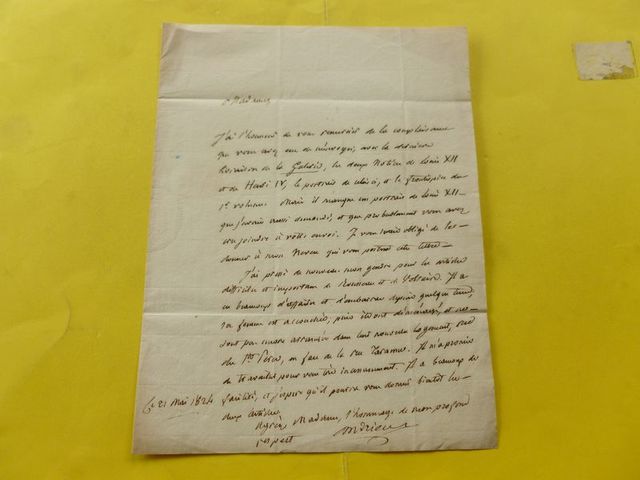 Madame
J'ai l'honneur de vous remercier de la complaisance
que vous avez eue de m'envoyer, avec la dernière
livraison de la Galerie, les deux Notices de Louis XII
et de Henri IV, le portrait de celui-ci, et le frontispice du
1er volume. Mais il manque un portrait de Louis XII
que j'avais aussi demandé, et que probablement vous avez
cru joindre à votre envoi. Je vous serais obligé de le
donner à mon Neveu qui vous portera cette lettre.
J'ai pressé de nouveau mon gendre pour les articles
difficiles et importans de Rousseau et de Voltaire. Il a
eu beaucoup d'affaires et d'embarras depuis quelque tems,
sa femme est accouchée, puis ils ont déménagé, et ne
sont pas encore arrangés dans leur nouveau logement, rue
des Sts Pères, en face de la rue Taranne. Il m'a promis
de travailler pour vous très incessamment. Il a beaucoup de
facilité, et j'espère qu'il pourra vous donner bientôt les
deux articles.
Agréez Madame, l'hommage de mon profond
respect
Andrieux
Ce 21 Mai 1824